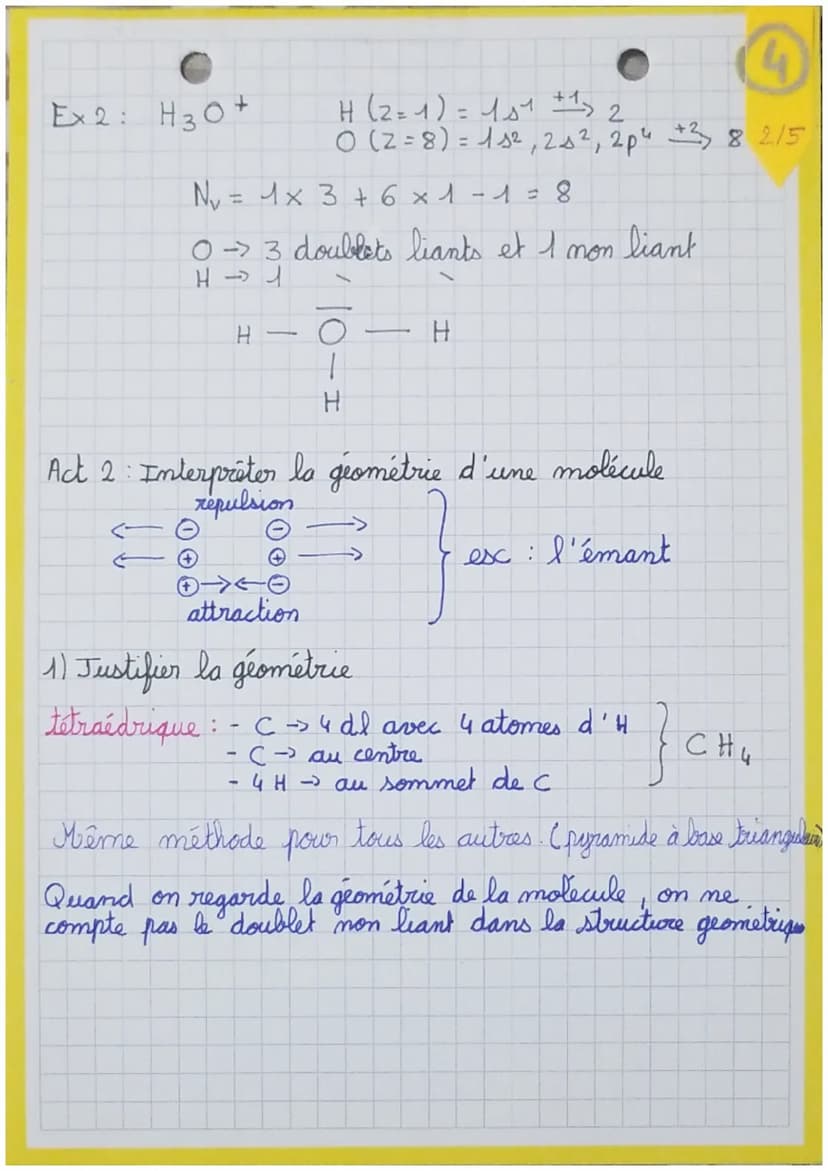 4
Ex 2 : H3O+ H (Z=1) = 1s1 +1→ 2
O (Z=8) = 1s2, 2s2, 2p4 +2→ 8 2/5
Nv = 1 × 3 + 6 × 1 - 1 = 8
O → 3 doublets liants et 1 non liant
H → 1 \ \
H — O — H
H
Act 2 : Interprèter la géométrie d'une molécule
repulsion
← ⊖ ⊖ →
← ⊕ ⊕ → esc : l'émant
⊕→←⊖
attraction
1) Justifier la géométrie
tétraédrique : - C → 4 dl avec 4 atomes d'H
- C → au centre CH4
- 4 H → au sommet de C
Même méthode pour tous les autres. (pyramide à base triangulaire)
Quand on regarde la géométrie de la molécule, on ne
compte pas le doublet non liant dans la structure geométrique